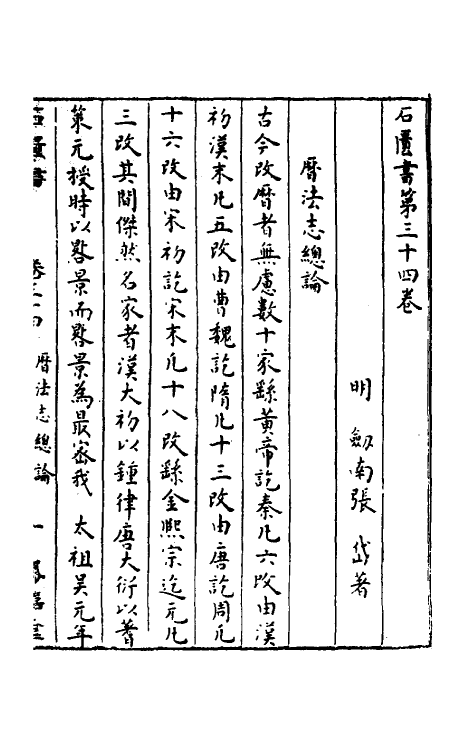 石匱書第三十四卷
明　劒南張　岱著
曆法志總論
古今改曆者無慮數十家繇黃帝訖秦凡六改由漢
初漢末凡五改由曹魏訖隋凡十三改由唐訖周凡
十六改由宋初訖宋末凡十八改繇金熙宗迄元凡
三改其間傑然名家者漢大初以鍾律唐大衍以蓍
策元授時以晷景而晷景為最密我　太祖吳元年
石匱書　卷三十四　曆法志總論　一